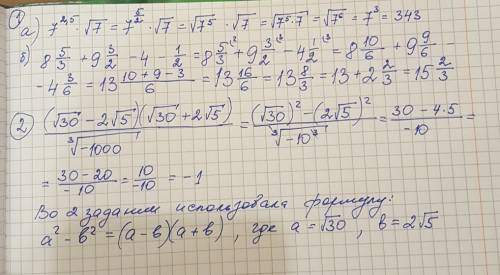 ① а) 7^{2,5} · √7 = 7^{5/2} · √7 = √7^5 · √7 = √7^5·7 = √7^6 = 7^3 = 343
б) 8 5/3 + 9 3/2 - 4 - 1/2 = 8 5/3^{(2} + 9 3/2^{(3} - 4 1/2^{(3} = 8 10/6 + 9 9/6 -
- 4 3/6 = 13 (10+9-3)/6 = 13 16/6 = 13 8/3 = 13 + 2 2/3 = 15 2/3
② (√30 - 2√5)(√30 + 2√5)/∛-1000 = ((√30)^2 - (2√5)^2)/∛-10^3 = (30 - 4·5)/-10 =
= (30-20)/-10 = 10/-10 = -1
Во 2 задании использовала формулу:
a² - b² = (a-b)(a+b), где a = √30, b = 2√5